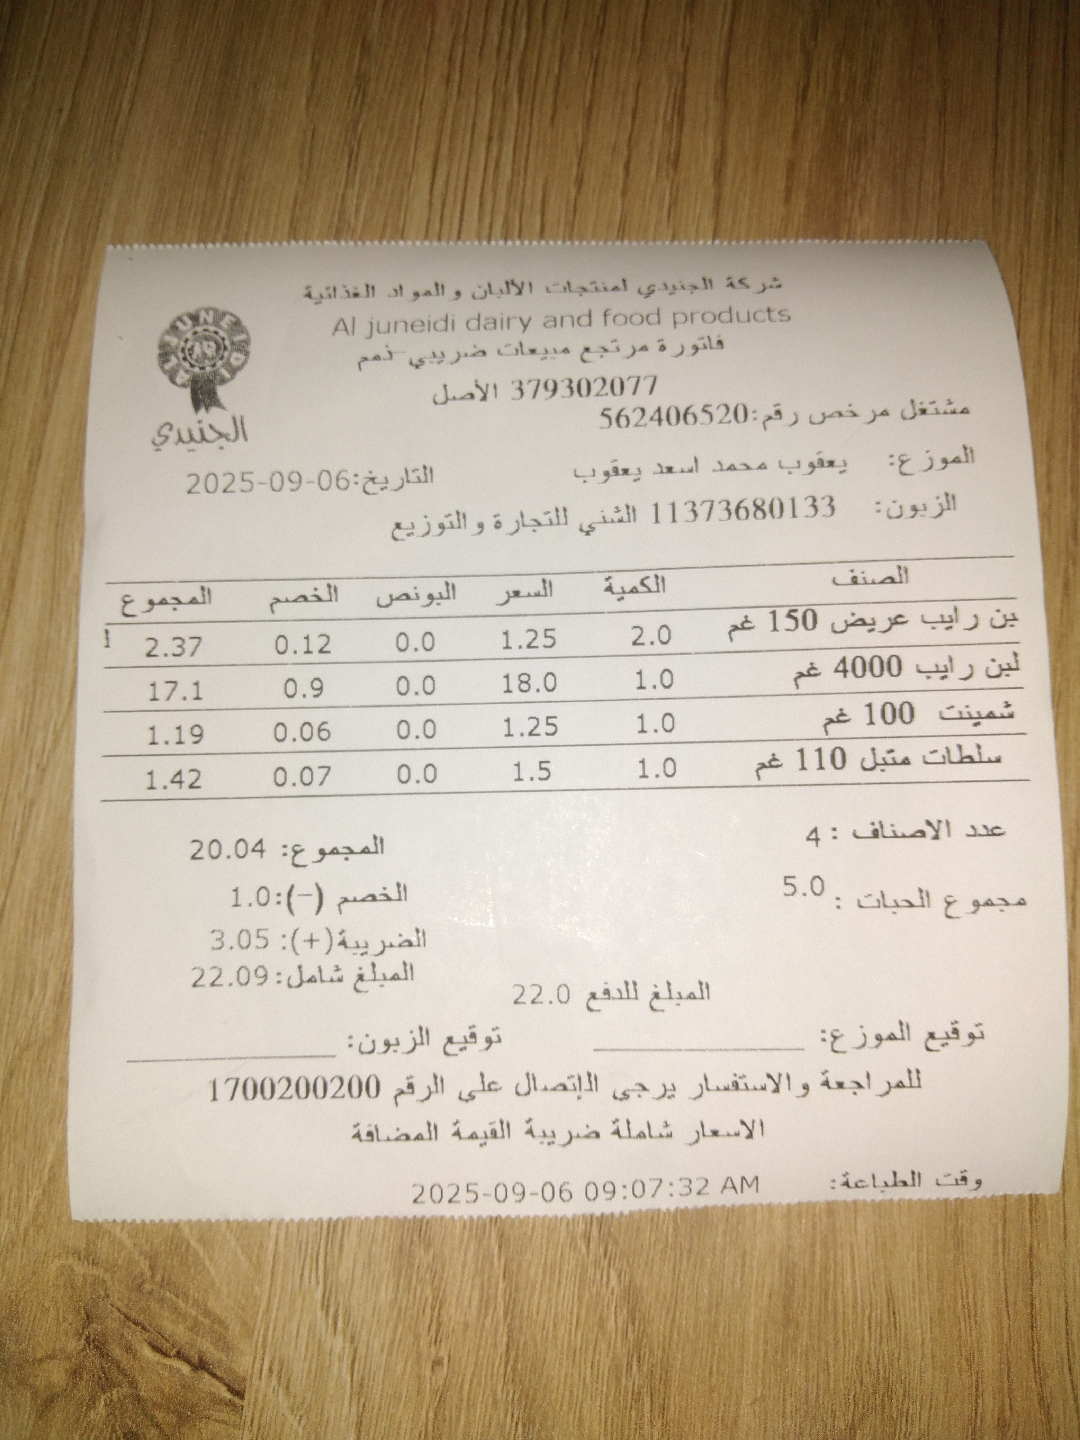 شركة الجنيدي لمنتجات الألبان والمواد الغذائية
Al juneidi dairy and food products
فاتورة مرتجع مبيعات ضريبي ذمم
379302077 الأصل
JUNEIDI
الجنيدي
مشتغل مرخص رقم:562406520
الموزع: يعقوب محمد اسعد يعقوب التاريخ:2025-09-06
الزبون: 11373680133 الشني للتجارة والتوزيع
الصنف الكمية السعر البونص الخصم المجموع
بن رايب عريض 150 غم 2.0 1.25 0.0 0.12 2.37
لبن رايب 4000 غم 1.0 18.0 0.0 0.9 17.1
شمينت 100 غم 1.0 1.25 0.0 0.06 1.19
سلطات متبل 110 غم 1.0 1.5 0.0 0.07 1.42
عدد الاصناف : 4 المجموع: 20.04
مجموع الحبات : 5.0 الخصم (-):1.0
الضريبة(+): 3.05
المبلغ شامل:22.09
المبلغ للدفع 22.0
توقيع الموزع: توقيع الزبون:
للمراجعة والاستفسار يرجى الإتصال على الرقم 1700200200
الاسعار شاملة ضريبة القيمة المضافة
وقت الطباعة: 2025-09-06 09:07:32 AM